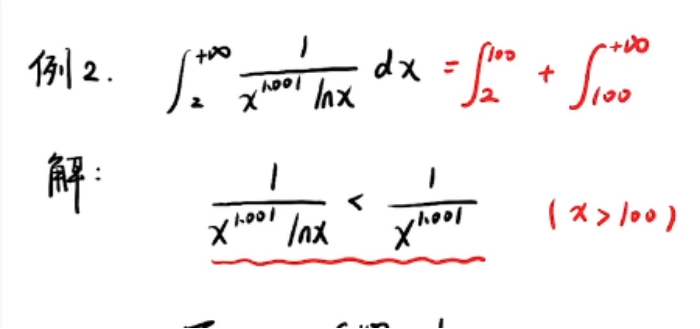 例2. ∫₂^{+∞} 1/(x^{1.001} lnx) dx = ∫₂^{100} + ∫₁₀₀^{+∞}
解: 1/(x^{1.001} lnx) < 1/x^{1.001} (x>100)